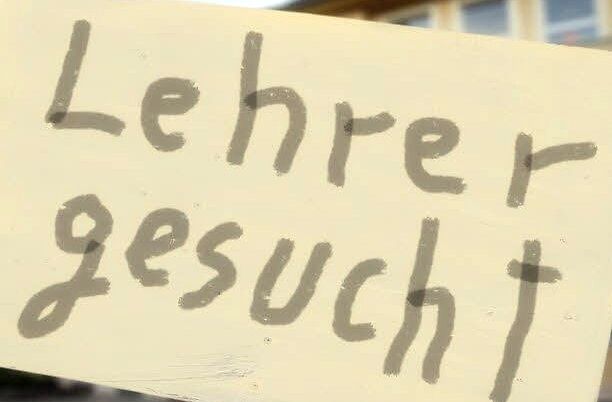 Lehrer
gesucht